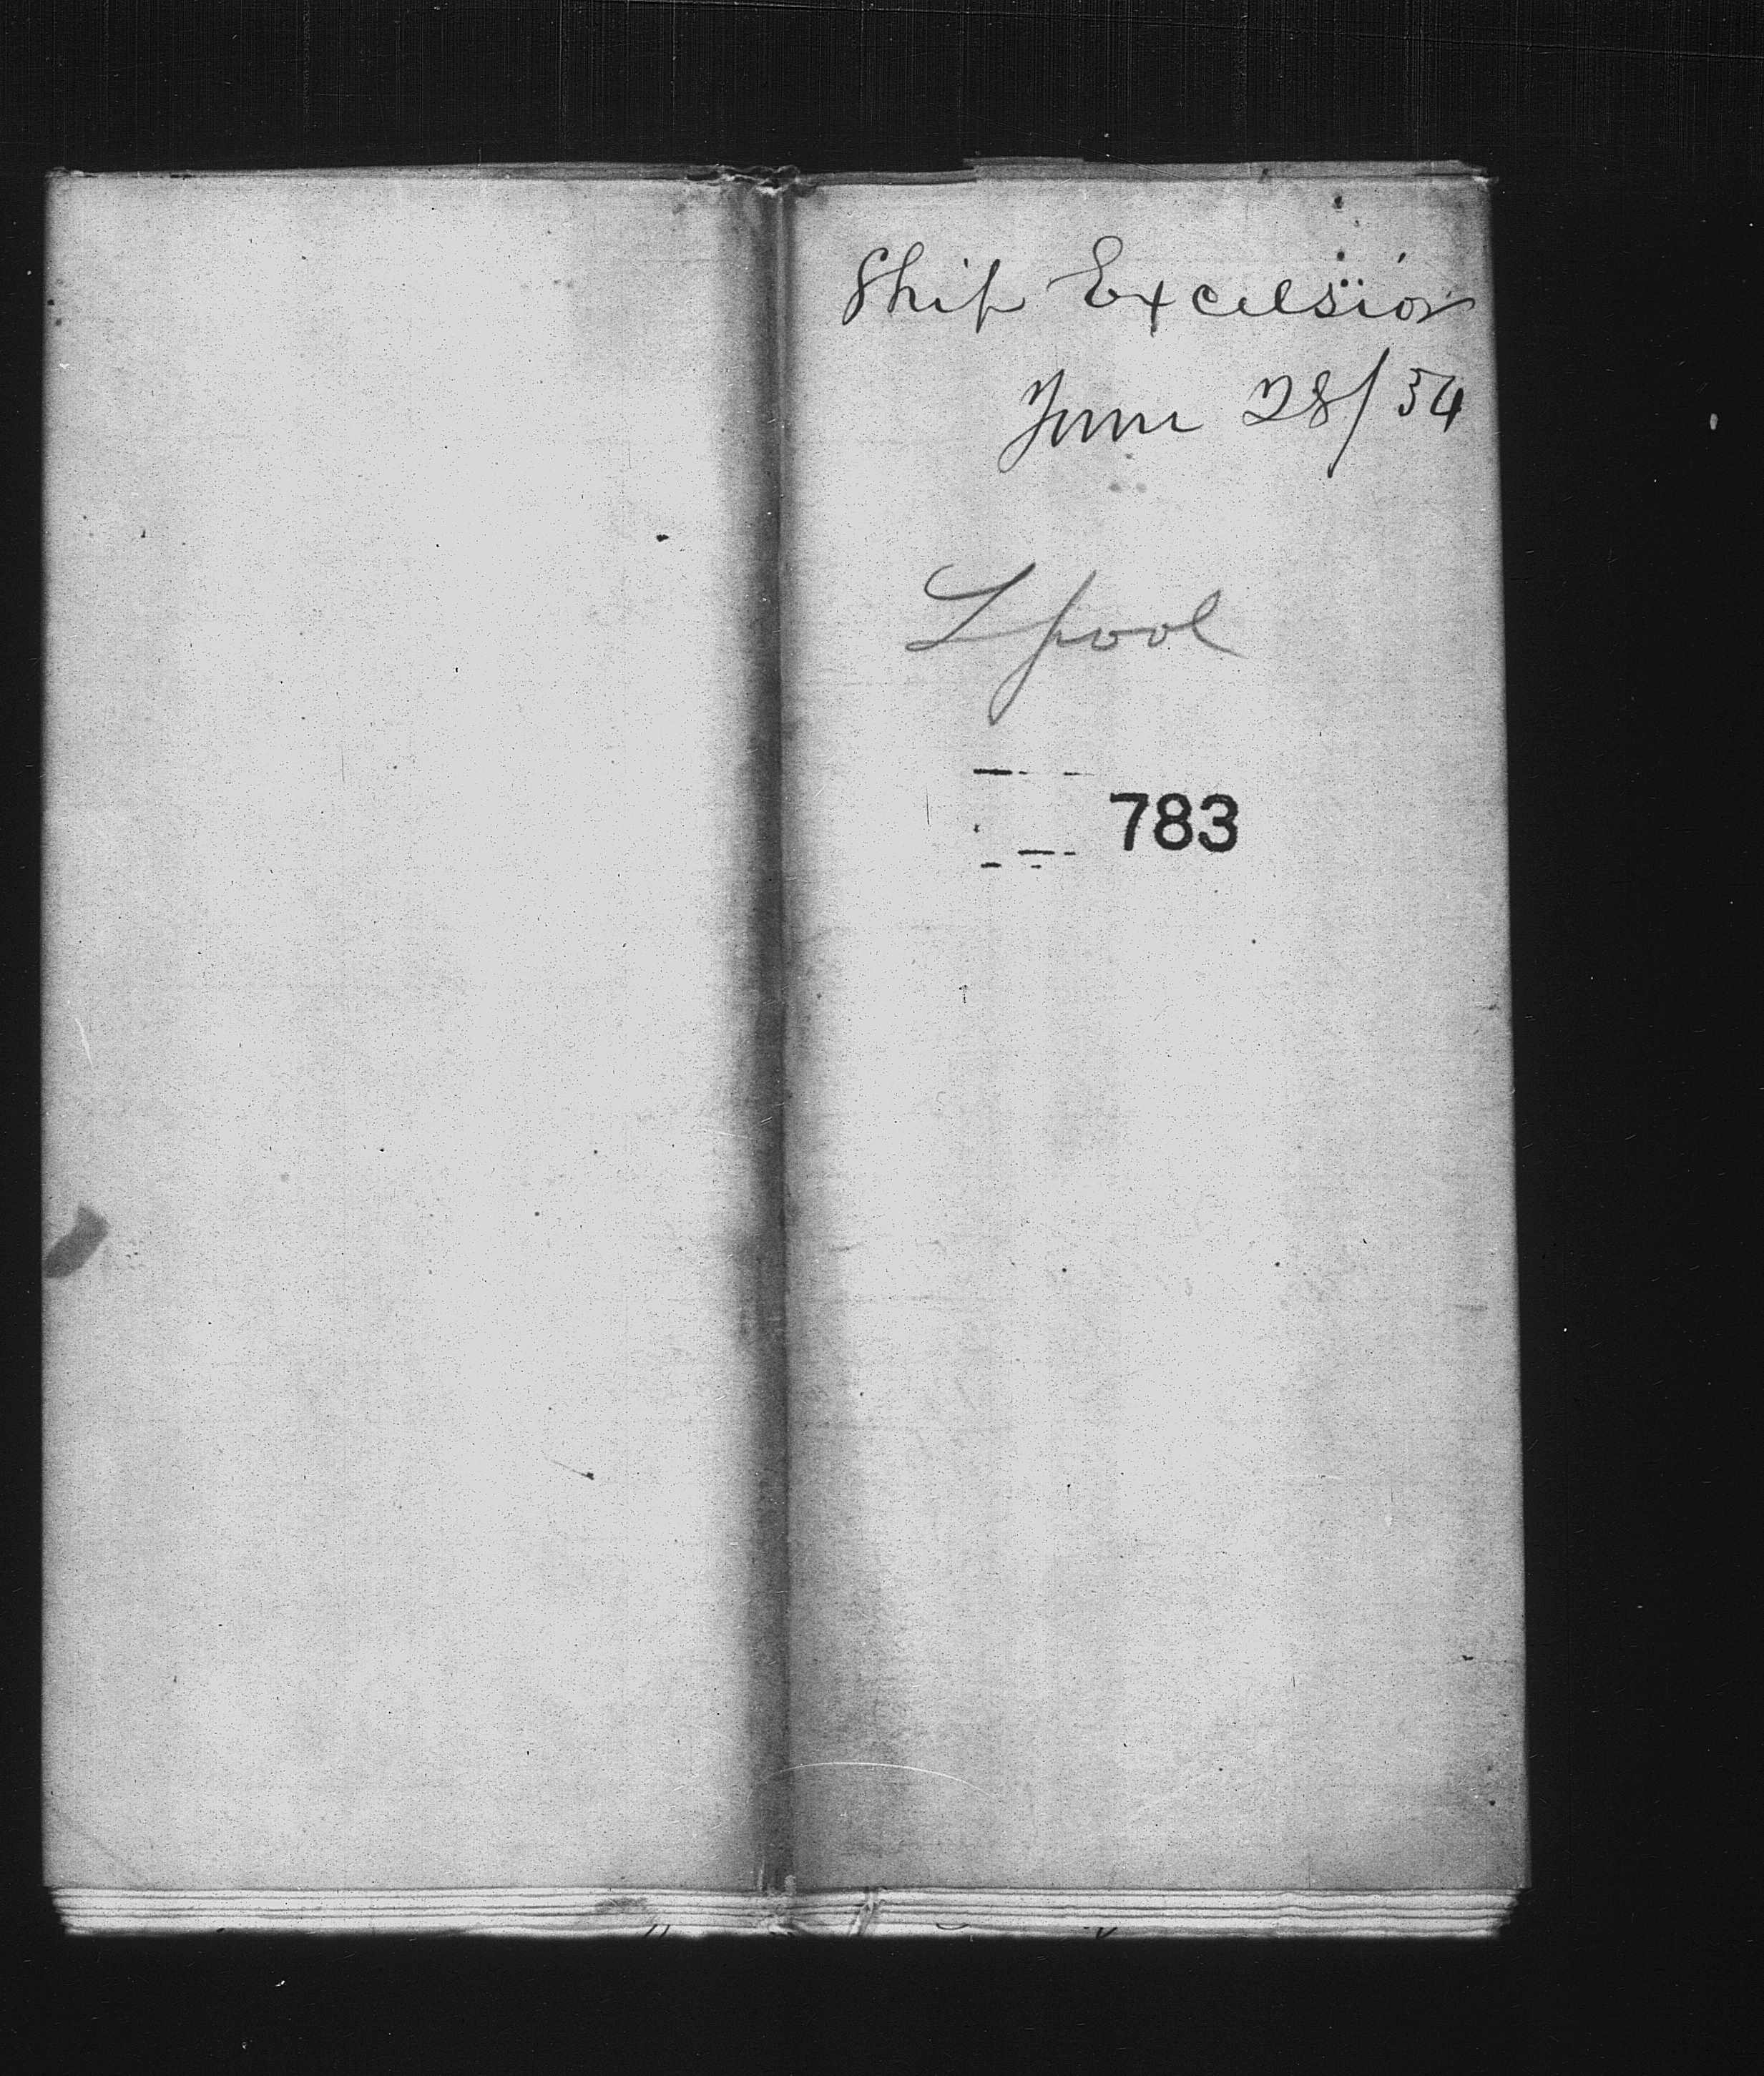 Ship Excelsior
June 28/54
Lpool
783